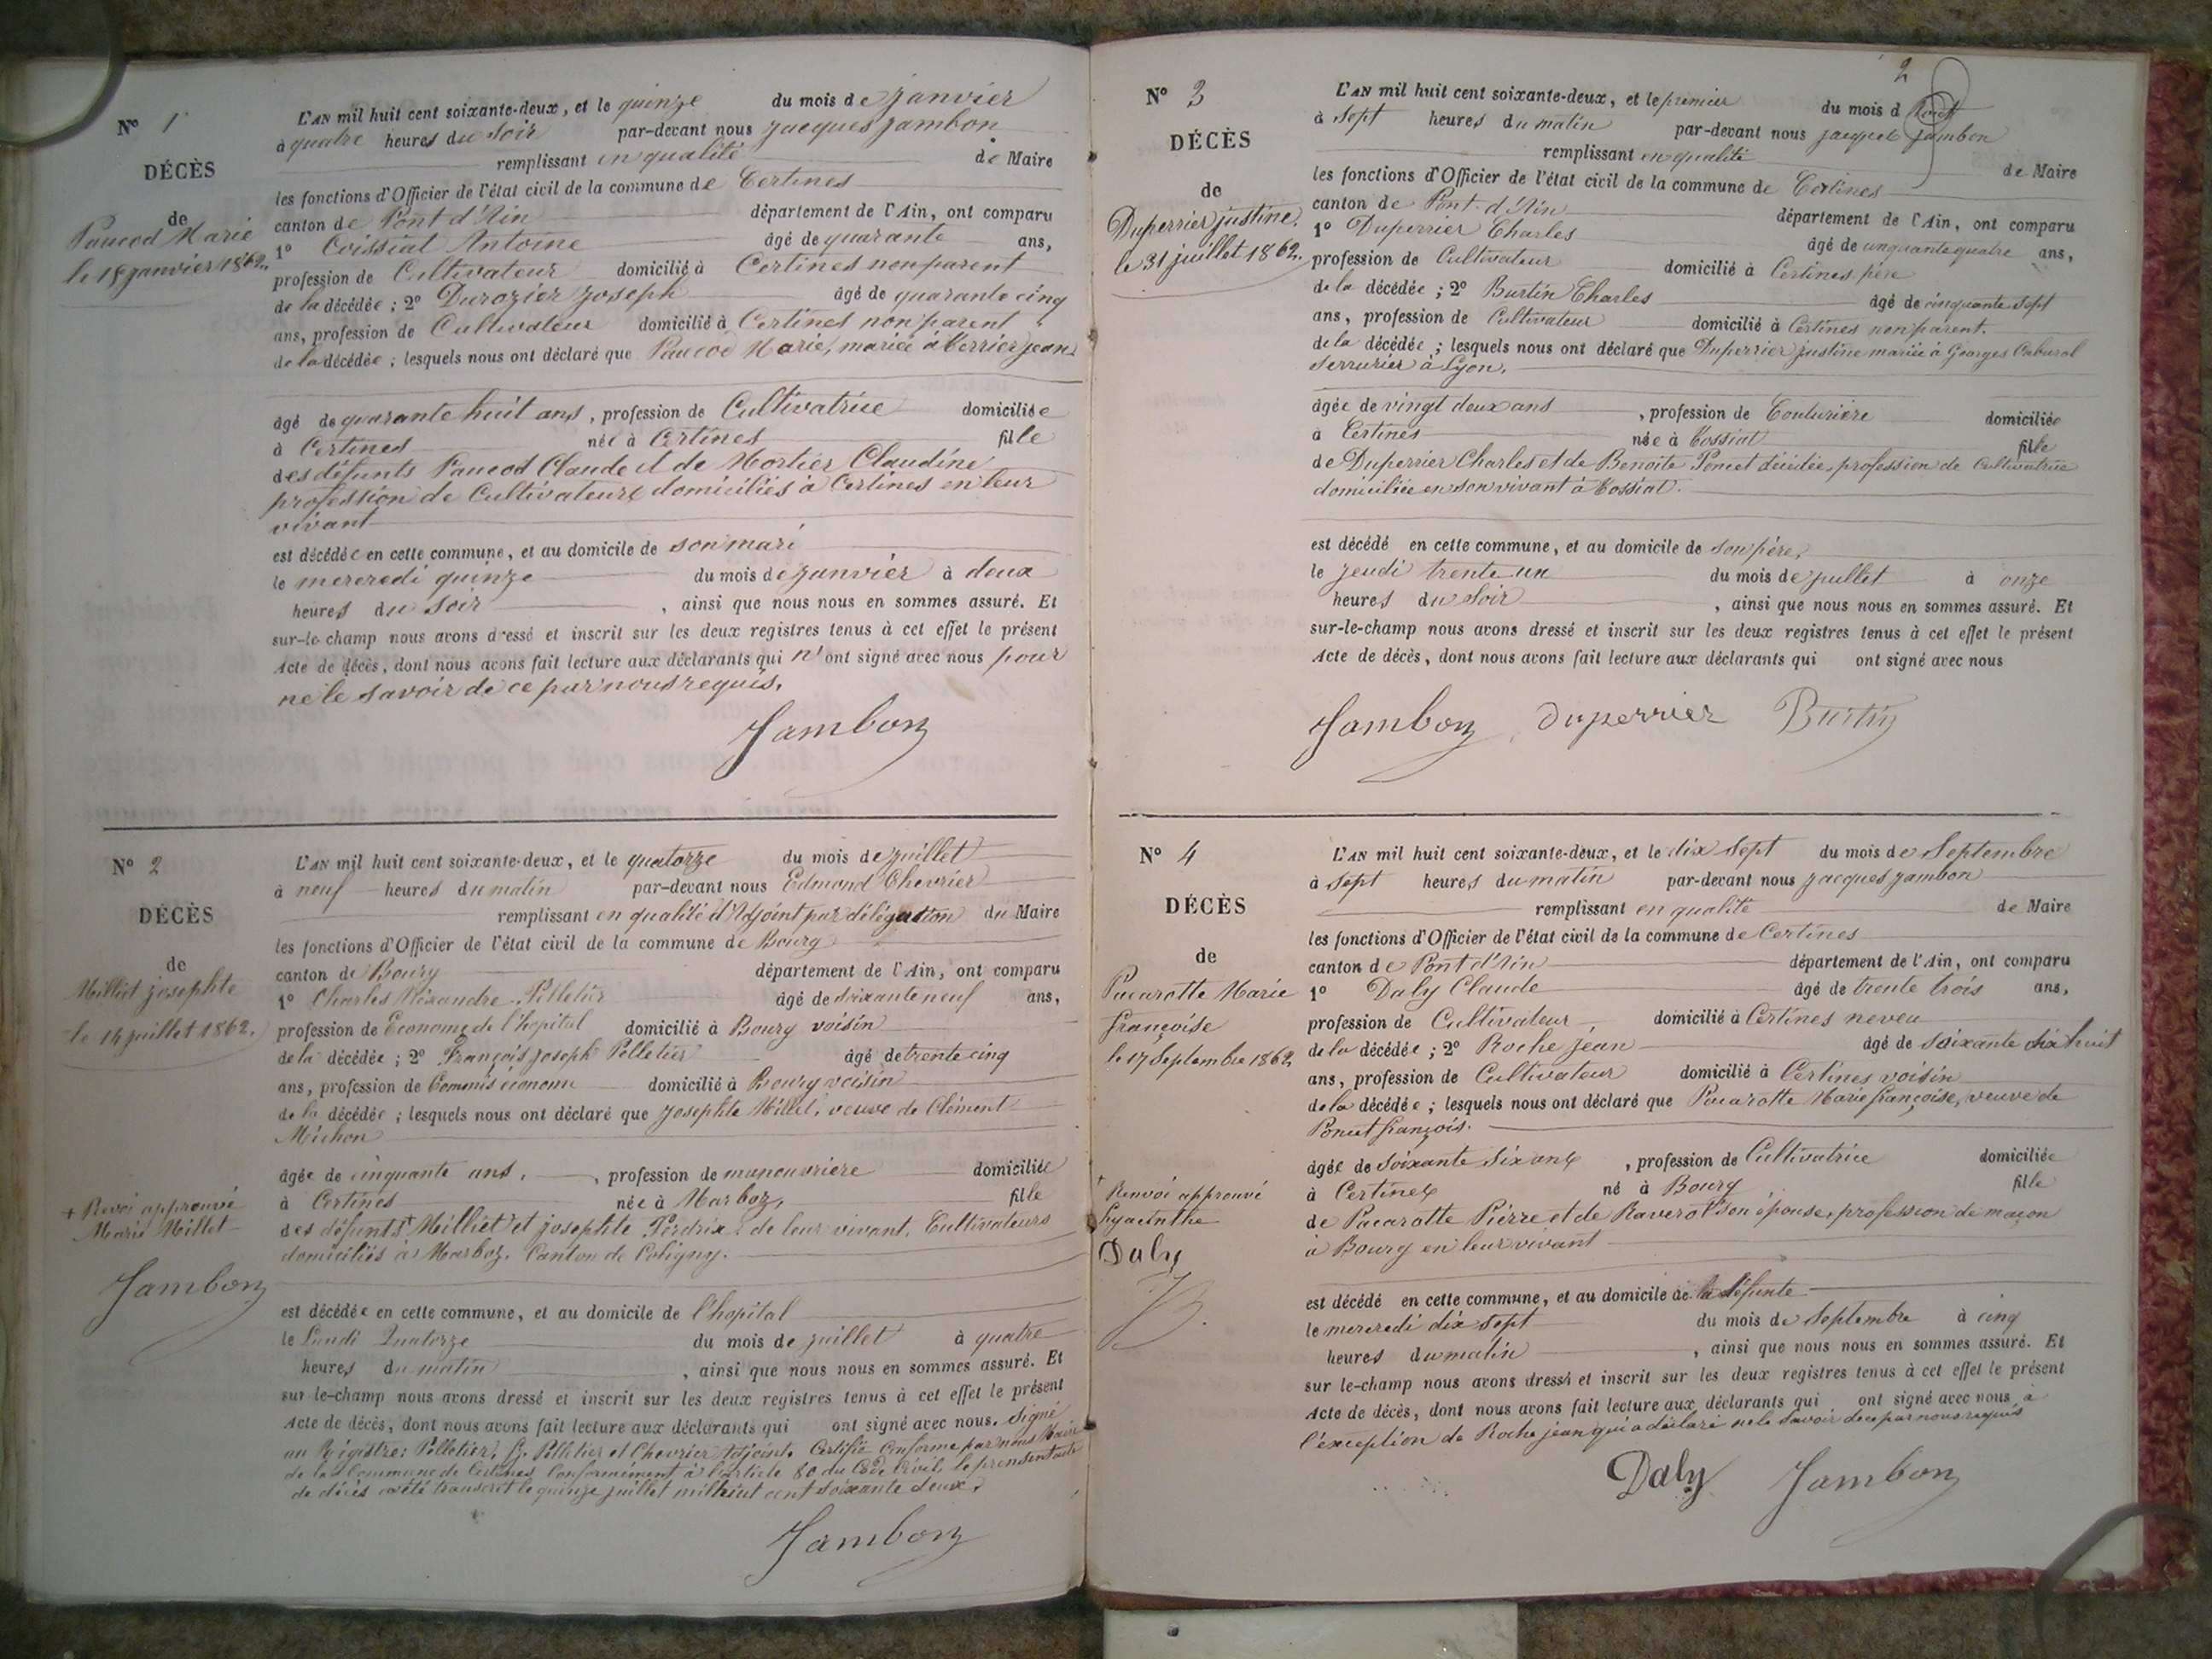 N° 1
DÉCÈS
de
Paucod Marie
le 15 janvier 1862.
L'AN mil huit cent soixante-deux, et le quinze du mois de janvier
à quatre heures du soir par-devant nous jacques jambon
remplissant en qualité de Maire
les fonctions d'Officier de l'état civil de la commune de Certines
canton de Pont d'Ain département de l'Ain, ont comparu
1° Coissiat Antoine âgé de quarante ans,
profession de Cultivateur domicilié à Certines non parent
de la décédée ; 2° Durozier joseph âgé de quarante cinq
ans, profession de Cultivateur domicilié à Certines non parent
de la décédée ; lesquels nous ont déclaré que Paucod Marie, mariée à Verrier jean
âgé de quarante huit ans, profession de Cultivatrice domiciliée
à Certines née à Certines fille
des défunts Paucod Claude et de Mortier Claudine
profession de Cultivateurs domiciliés à Certines en leur
vivant
est décédée en cette commune, et au domicile de son mari
le mercredi quinze du mois de janvier à deux
heures du soir , ainsi que nous nous en sommes assuré. Et
sur-le-champ nous avons dressé et inscrit sur les deux registres tenus à cet effet le présent
Acte de décès, dont nous avons fait lecture aux déclarants qui n'ont signé avec nous pour
ne le savoir de ce par nous requis.
Jambon
N° 2
DÉCÈS
de
Milliet josephte
le 14 juillet 1862.
L'AN mil huit cent soixante-deux, et le quatorze du mois de juillet
à neuf heures du matin par-devant nous Edmond Chevrier
remplissant en qualité d'Adjoint par délégation du Maire
les fonctions d'Officier de l'état civil de la commune de Bourg
canton de Bourg département de l'Ain, ont comparu
1° Charles Alexandre Pelletier âgé de soixante neuf ans,
profession de Econome de l'hopital domicilié à Bourg voisin
de la décédée ; 2° François joseph Pelletier âgé de trente cinq
ans, profession de Commis économe domicilié à Bourg voisin
de la décédée ; lesquels nous ont déclaré que josephte Milliet, veuve de Clément
Michon
âgée de cinquante ans, profession de manouvrière domiciliée
à Certines née à Marboz, fille
des défunts + Milliet et josephte Perdrix, de leur vivant, Cultivateurs
domiciliés à Marboz, Canton de Coligny.
+ Renvoi approuvé
Marie Millet
Jambon
est décédée en cette commune, et au domicile de l'hopital
le Lundi Quatorze du mois de juillet à quatre
heures du matin , ainsi que nous nous en sommes assuré. Et
sur le-champ nous avons dressé et inscrit sur les deux registres tenus à cet effet le présent
Acte de décès, dont nous avons fait lecture aux déclarants qui ont signé avec nous. Signé
au Régistre: Pelletier, Pelletier et Chevrier Adjoint. Certifié Conforme par nous Maire
de la Commune de Certines Conformément à l'article 80 du Code Civil, le present acte
de décès a été transcrit le quinze juillet mil huit cent soixante deux.
Jambon
2
N° 3
DÉCÈS
de
Duperrier justine.
le 31 juillet 1862.
L'AN mil huit cent soixante-deux, et le premier du mois d'Aout
à sept heures du matin par-devant nous jacques jambon
remplissant en qualité de Maire
les fonctions d'Officier de l'état civil de la commune de Certines
canton de Pont d'Ain département de l'Ain, ont comparu
1° Duperrier Charles âgé de cinquante quatre ans,
profession de Cultivateur domicilié à Certines père
de la décédée ; 2° Burtin Charles âgé de cinquante sept
ans, profession de Cultivateur domicilié à Certines non parent.
de la décédée ; lesquels nous ont déclaré que Duperrier justine mariée à Georges
serrurier à Lyon.
âgée de vingt deux ans , profession de Couturière domiciliée
à Certines née à Tossiat fille
de Duperrier Charles et de Benoite Poncet décédée, profession de Cultivatrice
domiciliée en son vivant à Tossiat.
est décédé en cette commune, et au domicile de son père,
le jeudi trente un du mois de juillet à onze
heures du soir , ainsi que nous nous en sommes assuré. Et
sur-le-champ nous avons dressé et inscrit sur les deux registres tenus à cet effet le présent
Acte de décès, dont nous avons fait lecture aux déclarants qui ont signé avec nous
Jambon Duperrier Burtin
N° 4
DÉCÈS
de
Pacarotte Marie
françoise
le 17 Septembre 1862
L'AN mil huit cent soixante-deux, et le dix sept du mois de Septembre
à sept heures du matin par-devant nous jacques jambon
remplissant en qualité de Maire
les fonctions d'Officier de l'état civil de la commune de Certines
canton de Pont d'Ain département de l'Ain, ont comparu
1° Daly Claude âgé de trente trois ans,
profession de Cultivateur domicilié à Certines neveu
de la décédée ; 2° Roche jean âgé de soixante dix huit
ans, profession de Cultivateur domicilié à Certines voisin
de la décédée ; lesquels nous ont déclaré que Pacarotte Marie françoise, veuve de
Poncet françois.
âgée de soixante six ans , profession de Cultivatrice domiciliée
à Certines né à Bourg fille
de Pacarotte Pierre et de Raverot + son épouse, profession de maçon
à Bourg en leur vivant
+ Renvoi approuvé
hyacinthe
Daly
est décédé en cette commune, et au domicile de la défunte
le mercredi dix sept du mois de Septembre à cinq
heures du matin , ainsi que nous nous en sommes assuré. Et
sur le-champ nous avons dressé et inscrit sur les deux registres tenus à cet effet le présent
Acte de décès, dont nous avons fait lecture aux déclarants qui ont signé avec nous à
l'exception de Roche jean qui a déclaré ne le savoir de ce par nous requis
Daly Jambon